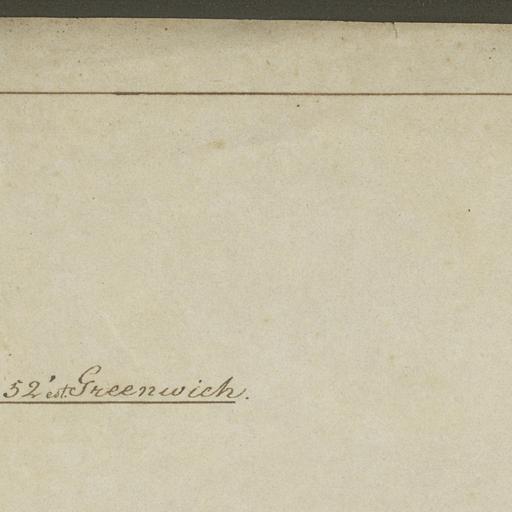 52' est. Greenwich.